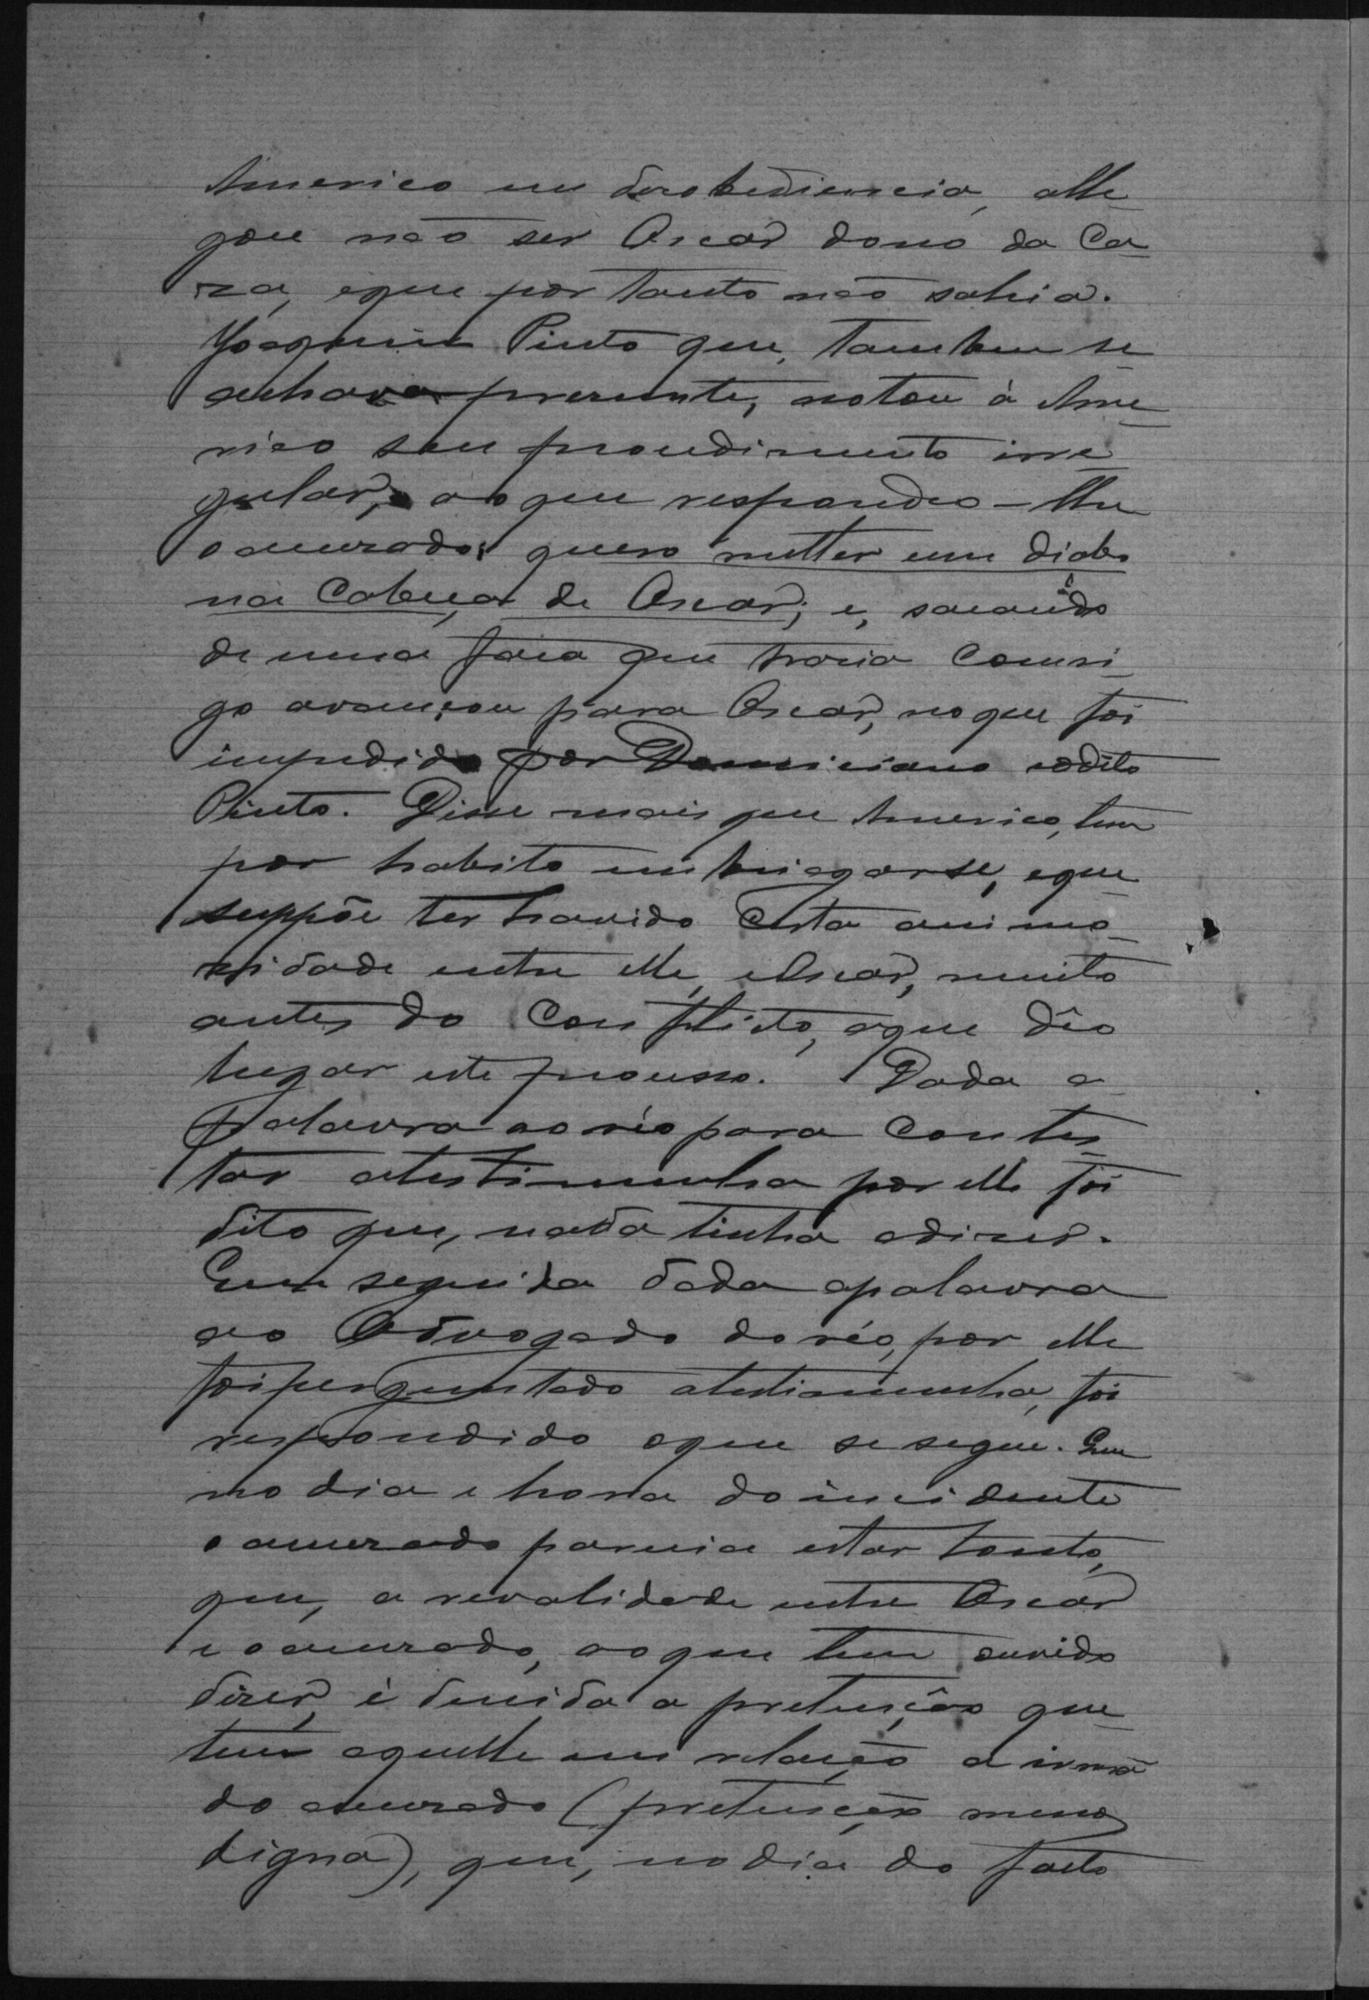 Americo em desobediencia, alle-
gou não ser Oscar dono da ca-
za, eque por tanto não sahia.
Joaquim Pinto que, tambem se
achava presente, notou á Ame-
rico seu procedimento irre-
gular, ao que respondeo-lhe
o accusado: quero metter um diabo
na cabeça de Oscar; e, sacando
de uma faca que trazia comsi-
go avançou para Oscar, no que foi
impedido por Domiciano eodito
Pinto. Disse mais que Americo, tem
por habito embriagar-se, eque
suppõe ter havido certa animo-
sidade entre elle, eOscar, muito
antes do conflicto, oque dêo
lugar este processo. Dada a
palavra ao réo para contes-
tar atestimunha por elle foi
dito que, nada tinha adizer.
Em seguida dada apalavra
ao Advogado do réo, por elle
foi perguntado atestimunha, foi
respondido oque se segue. Que
no dia e hora do incidente
o accusado parecia estar tonto,
que, a revalidade entre Oscar
e o accusado, ao que tem ouvido
dizer, é devida a pretenção que
tem aquelle em relação a irmã
do accusado (pretenção menos
digna), que, no dia do facto